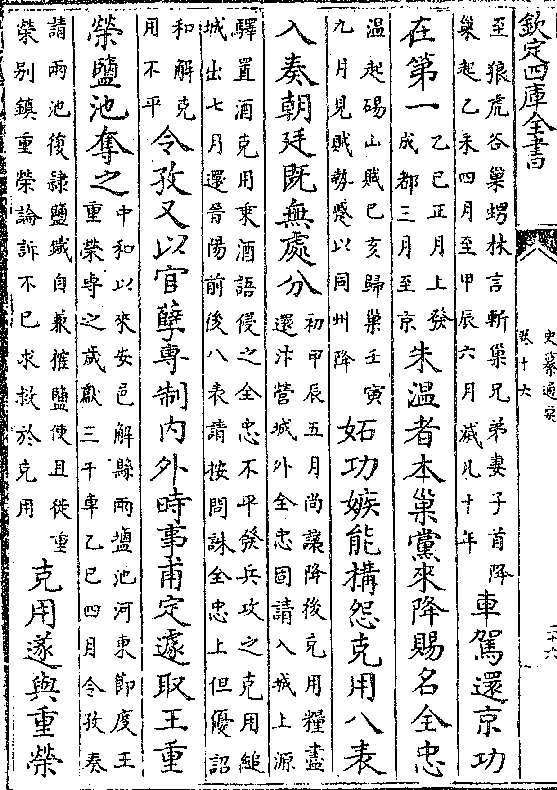 欽定四庫全書
史纂通要
卷十六
至狼虎谷巢甥林言斬巢兄弟妻子首降
巢起乙未四月至甲辰六月滅凡十年
車駕還京功
在第一
乙巳正月上發
成都三月至京
朱温者本巢黨來降賜名全忠
温起碭山賊巳亥歸巢壬寅
九月見賊勢蹙以同州降
妬功嫉能構怨克用八表
入奏朝廷既無處分
初甲辰五月尚讓降後克用糧盡
還汴營城外全忠固請入城上源
驛置酒克用乘酒語侵之全忠不平發兵攻之克用縋
城出七月還晉陽前後八表請按問誅全忠上但優詔
和解克
用不平
令孜又以官孽專制内外時事甫定遽取王重
榮鹽池奪之
中和以來安邑解縣兩鹽池河東節度王
重榮専之歲獻三千車乙巳四月令孜奏
請兩池復隷鹽鐵自兼榷鹽使且徙重
榮别鎮重榮論訴不巳求救於克用
克用遂與重榮